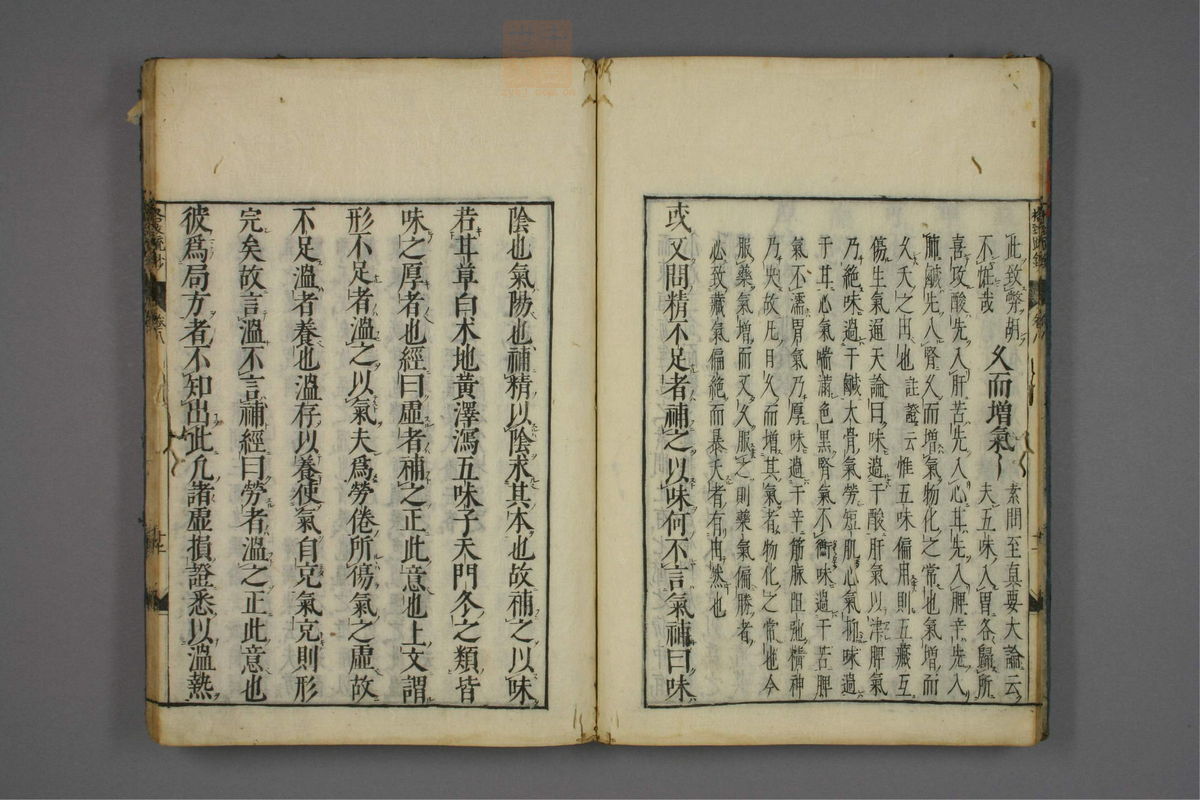 此致弊胡
不怔哉
久而增氣
素問至真要大論云
夫五味入胃各歸所
喜攻酸先入肝苦先入心甘先入脾辛先入
肺鹹先入腎久而增氣物化之常也氣增而
久夭之由也註證云惟五味偏用則五藏互
傷生氣通天論曰味過于酸肝氣以津脾氣
乃絶味過于鹹大骨氣勞短肌心氣抑味過
于甘心氣喘滿色黒腎氣不衡味過于苦脾
氣不濡胃氣乃厚味過于辛筋脉沮弛精神
乃央故凡用久而增其氣者物化之常也今
服藥氣增而又久服之則藥氣偏勝者
必致藏氣偏絶而暴夭者有由然也
或又問精不足者補之以味何不言氣補曰味
陰也氣陽也補精以陰求其本也故補之以味
若甘草白朮地黃澤瀉五味子天門冬之類皆
味之厚者也經曰虛者補之正此意也上文謂
形不足者溫之以氣夫爲勞倦所傷氣之虛故
不足溫者養也溫存以養使氣自克氣克則形
完矣故言溫不言補經曰勞者溫之正此意也
彼爲局方者不知出此凡諸虛損證悉以溫熱